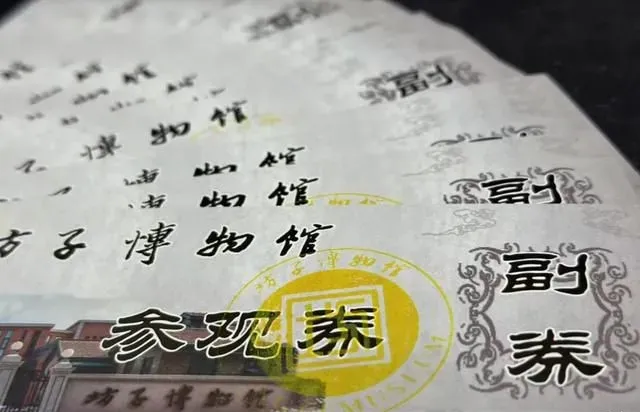 副
博物馆
物馆
副
物馆
坊子博物馆
副券
坊子博物馆
参观券
MUSEUM
坊子博物馆